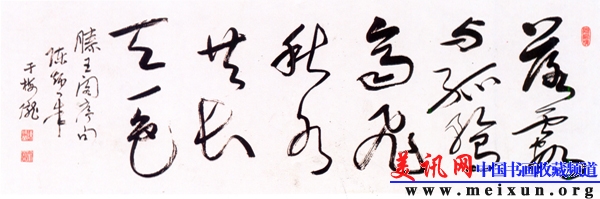 落霞
与孤鹜
齐飞
秋水
共长
天一色
滕王阁序句
美讯网 中国书画收藏频道
www.meixun.org